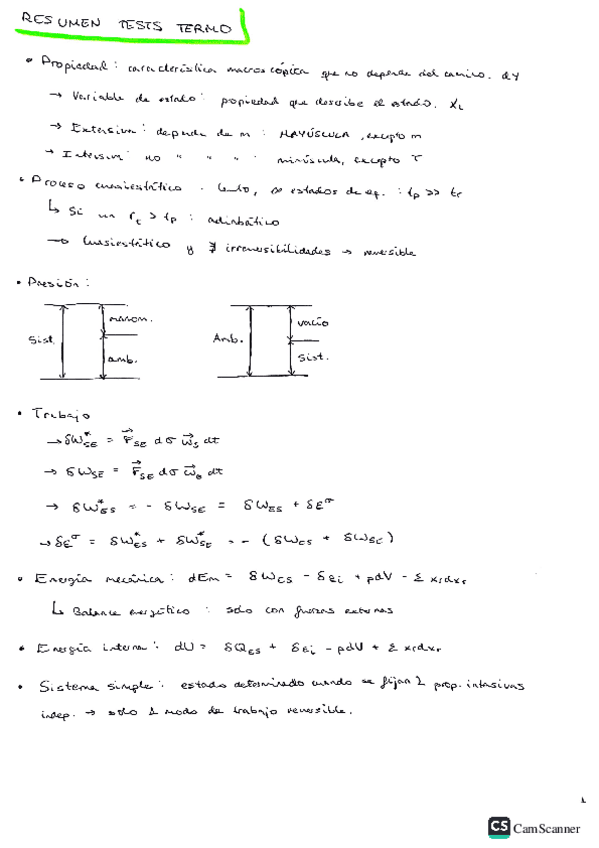 RESUMEN TESTS TERMO
• Propiedad: característica macroscópica que no depende del camino. dY
→ Variable de estado: propiedad que describe el estado. Xi
→ Extensiva: depende de m: MAYÚSCULA, excepto m
→ Intensiva: no " " ": minúscula, excepto T
• Proceso cuasiestático: lento, estados de eq.: tp >> tr
↳ Si un tr > tp: adiabático
→ Cuasiestático y ∄ irreversibilidades → reversible
• Presión:
Sist. manom. amb.
Amb. vacío Sist.
• Trabajo
→ δW*SE = F⃗SE dσ w⃗s dt
→ δWSE = F⃗SE dσ w⃗e dt
→ δW*ES = - δWSE = δWES + δEσ
→ δEσ = δW*ES + δW*SE = - (δWES + δWSE)
• Energía mecánica: dEm = δWES - δEi + pdV - Σ xrdXr
↳ Balance energético: solo con fuerzas externas
• Energía interna: dU = δQES + δEi - pdV + Σ xrdXr
• Sistema simple: estado determinado cuando se fijan 2 prop. intensivas
indep. → solo 1 modo de trabajo reversible.
1
CS CamScanner